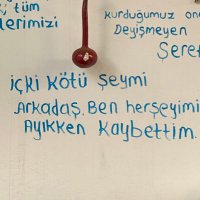 tüm
lerimizi
kurduğumuz
Deyişmeyen
Şeref
içki kötü şeymi
Arkadaş. Ben herşeyimi
Ayıkken kaybettim.